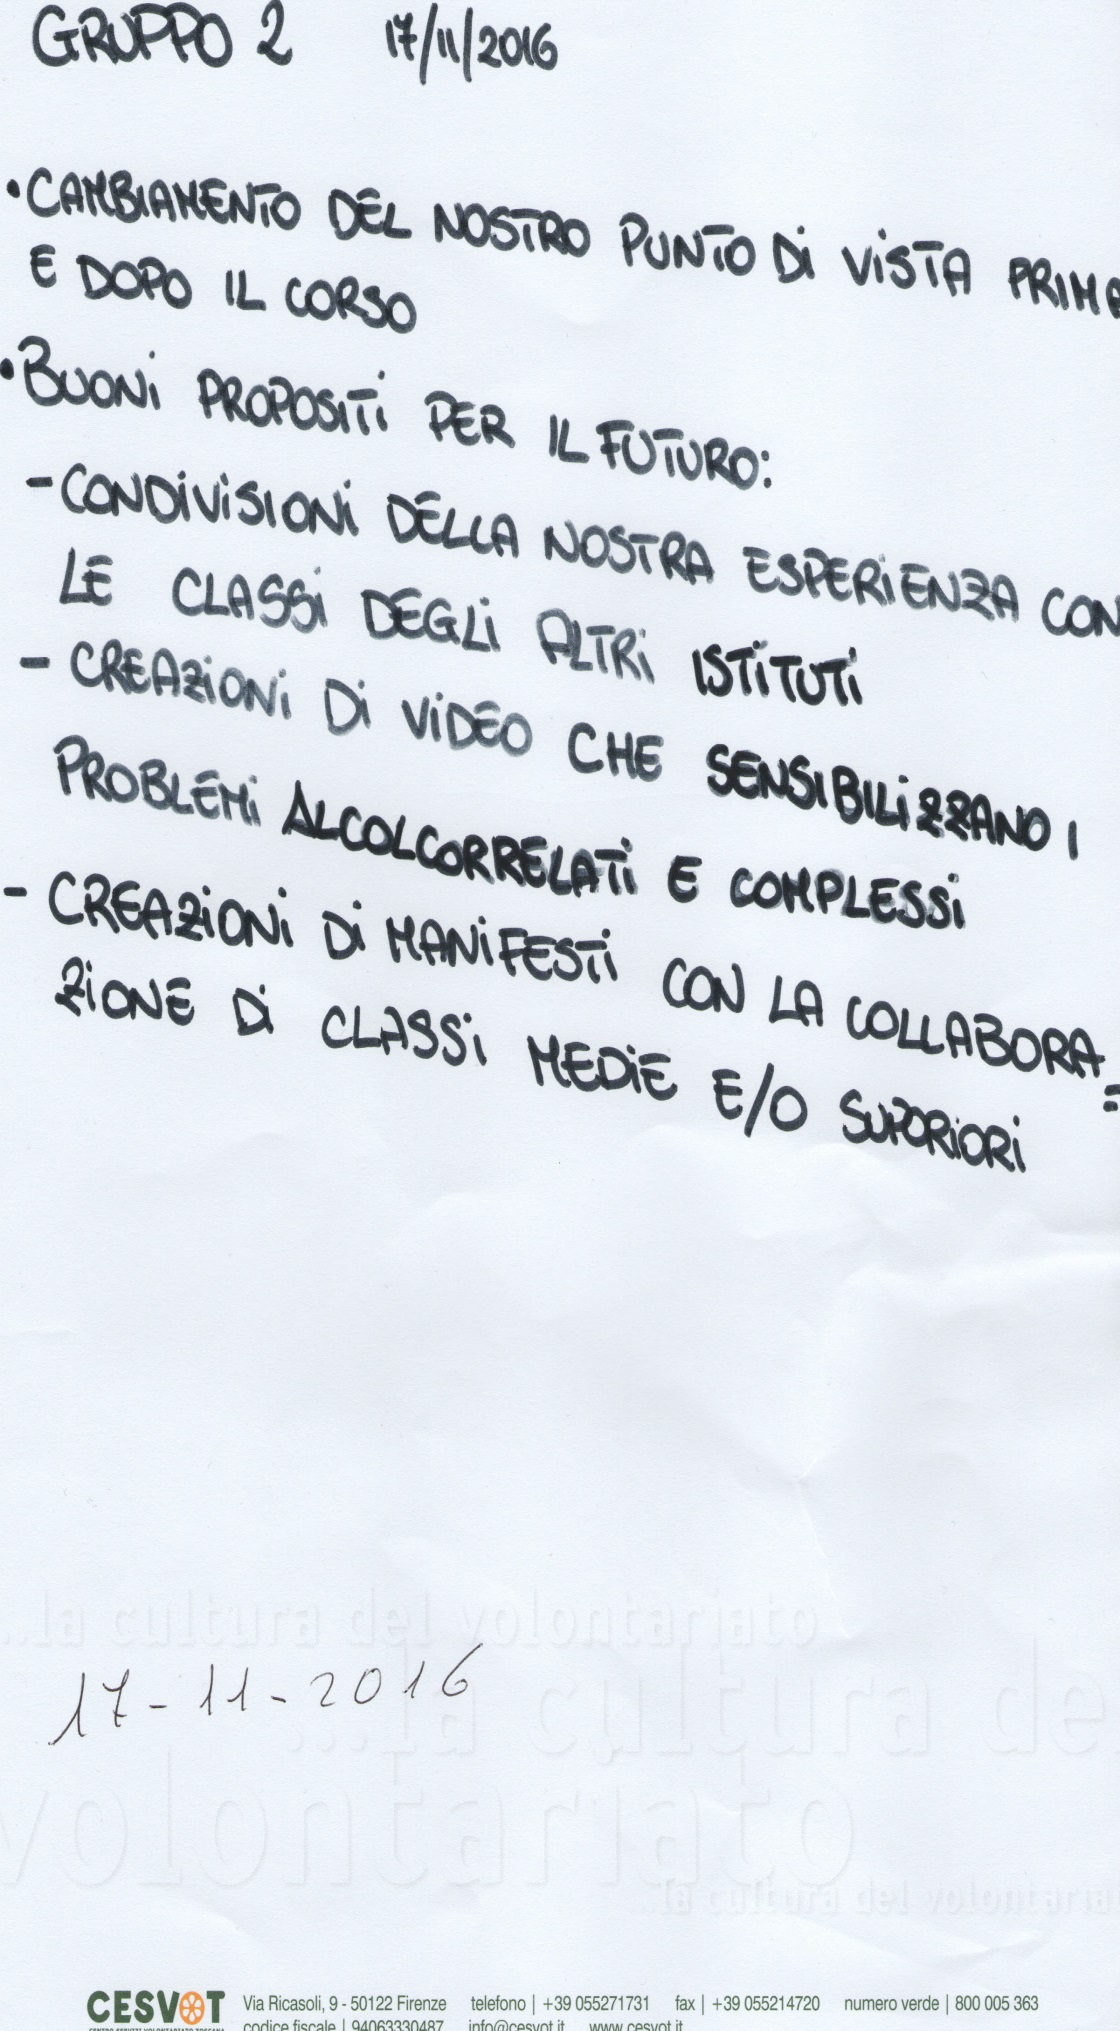 GRUPPO 2 17/11/2016
•CAMBIAMENTO DEL NOSTRO PUNTO Di ViSTA PRIMA
E DOPO IL CORSO
•BUONi PROPOSiTi PER IL FUTURO:
-CONDiViSIONi DELLA NOSTRA ESPERiENZA CON
LE CLASSi DEGLi ALTRi ISTiTUTi
-CREAZiONi Di ViDEO CHE SENSIBILiZZANO I
PROBLEMi ALCOLCORRELATi E COMPLESSi
- CREAZiONi Di MANiFESTi CON LA COLLABORA=
ZiONE Di CLASSi MEDiE E/O SUPORiORi
...la cultura del volontariato
17-11-2016
...la cultura de
volontariato
la cultura del volontaria
CESVOT Via Ricasoli, 9 - 50122 Firenze telefono | +39 055271731 fax | +39 055214720 numero verde | 800 005 363
CENTRO SERVIZI VOLONTARIATO TOSCANA codice fiscale | 94063330487 info@cesvot.it www.cesvot.it